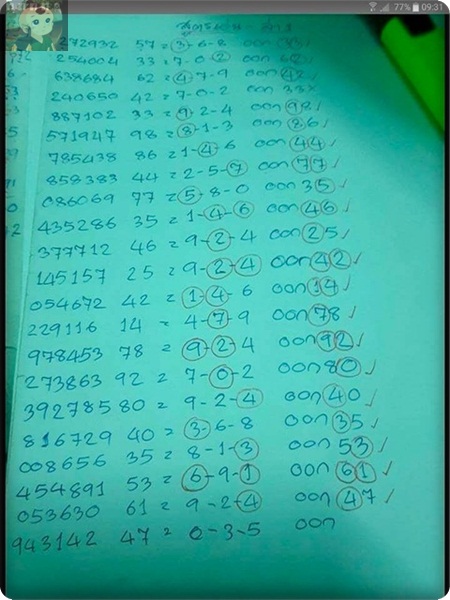 77% 09:31
272932 57 = 3-6-8 ออก 33
254004 33 = 7-0-2 ออก 62
638684 62 = 4-7-9 ออก 42
240650 42 = 7-0-2 ออก 33×
887102 33 = 9-2-4 ออก 98✓
571947 98 = 8-1-3 ออก 86✓
785438 86 = 1-4-6 ออก 44✓
858383 44 = 2-5-7 ออก 77✓
086069 77 = 5-8-0 ออก 35✓
435286 35 = 1-4-6 ออก 46✓
377712 46 = 9-2-4 ออก 25✓
145157 25 = 9-2-4 ออก 42✓
054672 42 = 1-4-6 ออก 14✓
229116 14 = 4-7-9 ออก 78✓
978453 78 = 9-2-4 ออก 92✓
273863 92 = 7-0-2 ออก 80✓
392785 80 = 9-2-4 ออก 40✓
816729 40 = 3-6-8 ออก 35✓
008656 35 = 8-1-3 ออก 53✓
454891 53 = 6-9-1 ออก 61✓
053630 61 = 9-2-4 ออก 47✓
943142 47 = 0-3-5 ออก